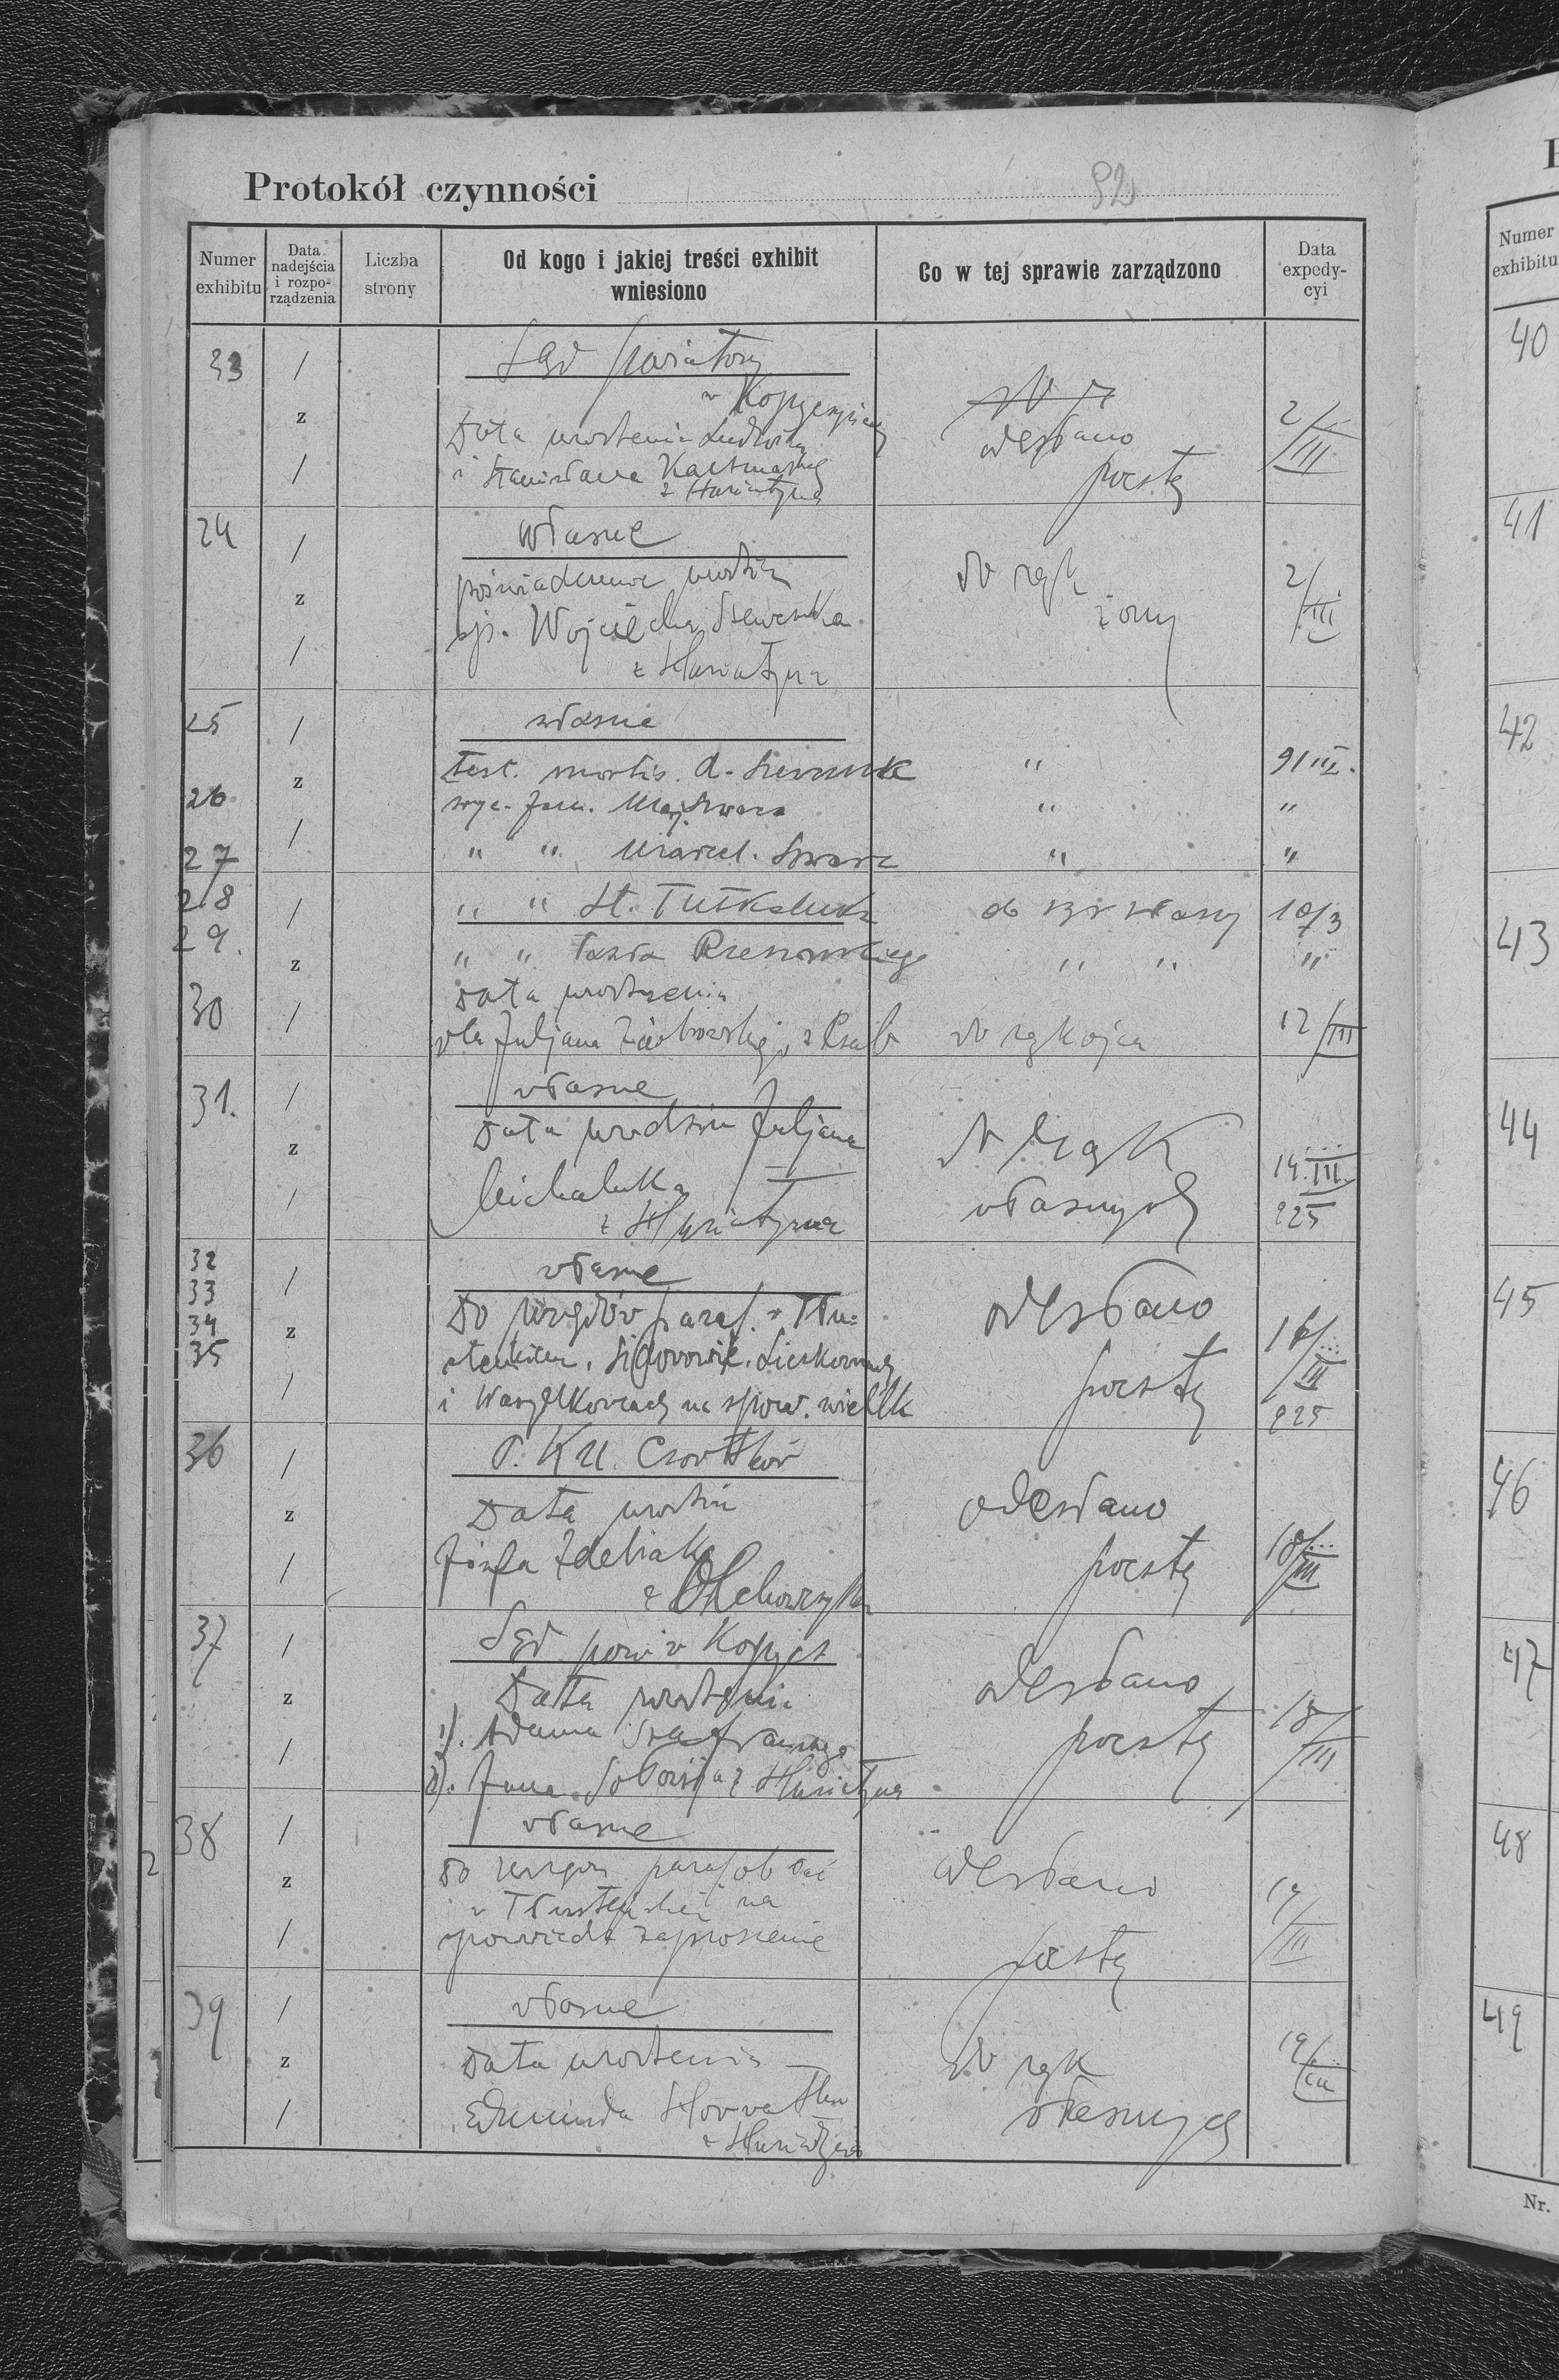 Protokół czynności 92
Numer exhibitu
Data nadejścia i rozporządzenia
Liczba strony
Od kogo i jakiej treści exhibit wniesiono
Co w tej sprawie zarządzono
Data expedycyi
23 / z / Sąd powiatowy
w Kopyczyńcach
Data urodzenia Ludwika
i Stanisława
z Husiatyna
odesłano
pocztą
2/III
24 / z / własne
poświadczenie urodzin
śp. Wojciecha
z Husiatyna
do rąk
żony
2/III
25 / z / własne
test. mortis. a.
" 9/III.
26 wyc. fam.
" "
27 " "
" "
28 / z / " " St.
do rąk własny 10/3
29. " "
" " "
30 Data urodzenia
dla Juljana
do rąk ojca 12/III
31. / z / własne
Data urodzin Juljana
Michaluka
z Husiatyna
do rąk
własnych
14.III.
925
32
33
34
35
/ z / własne
Do urzędów paraf. w Tłu=
steńkiem, Sidorowie, Liczkowcach
i Wasylkowcach na spow. wielk
odesłano
pocztą
16/III
925
36 / z / P. K. U. Czortków
Data urodzin
Józefa Zdebiaka
z Olchowczyka
odesłano
pocztą
18/III
37 / z / Sąd pow. w Kopycz
Data urodzenia
1). Adama
2). Jana z Husiatyna
odesłano
pocztą
18/III
38 / z / własne
do urzędu paraf. ob łać
w Tłusteńkiem na
spowiedź zaproszenie
odesłano
pocztą
19/III
39 / z / własne
Data urodzenia
Edmunda
z Husiatyna
do rąk
własnych
19/III
Numer
exhibitu
40
41
42
43
44
45
46
47
48
49
Nr.